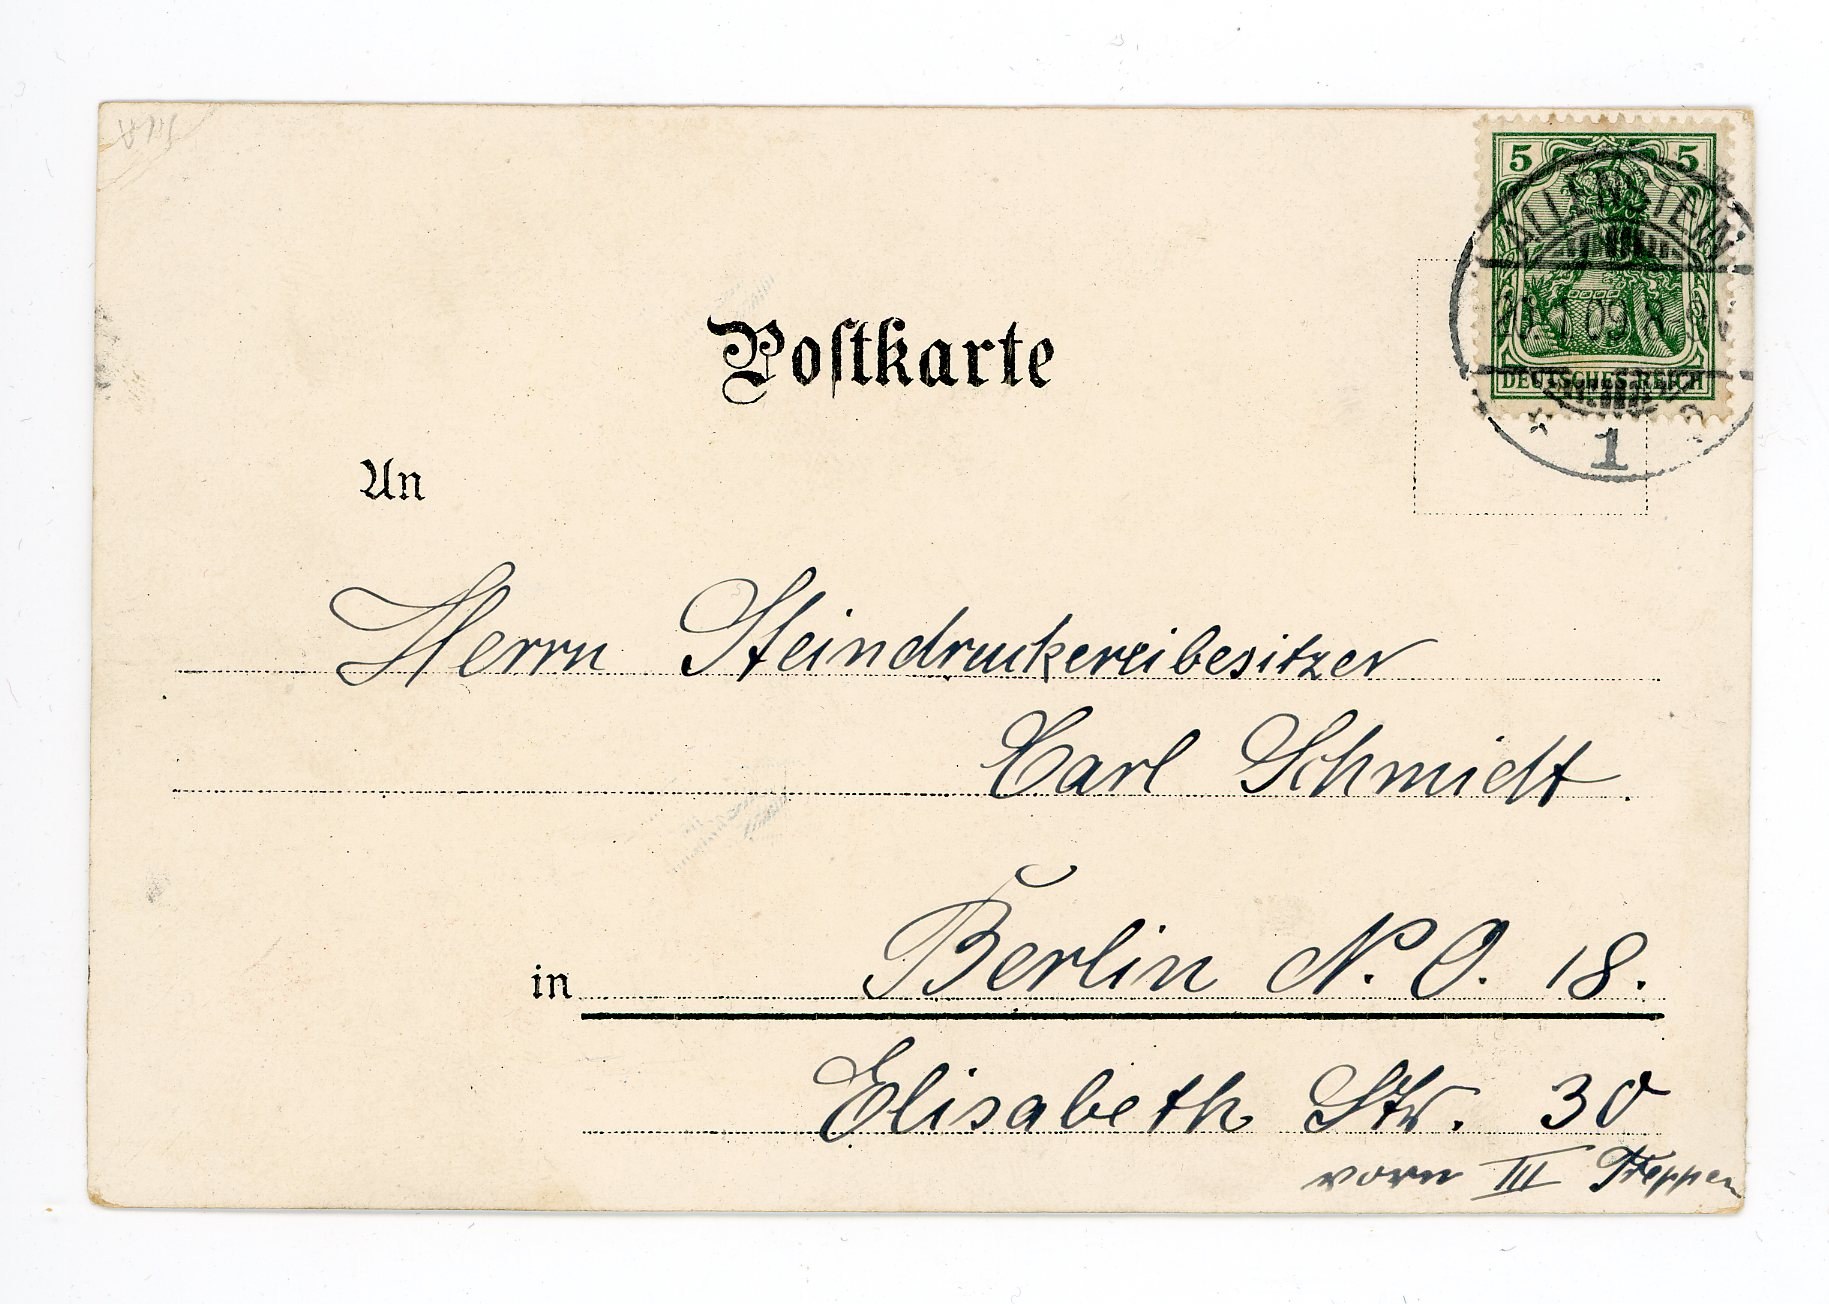 5 5
ALLENSTEIN
09
DEUTSCHES REICH
1
Postkarte
An
Herrn Steindruckereibesitzer
Carl Schmidt.
in Berlin N. O. 18.
Elisabeth Str. 30
vorn III Treppen